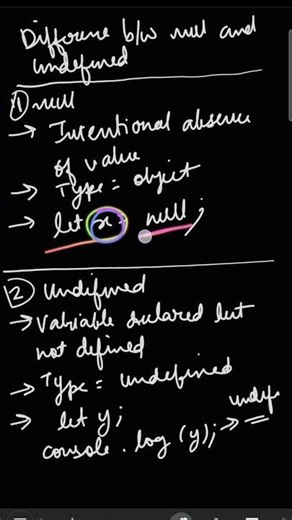 Difference b/w null and
undefined
① null
→ Intentional absence
of value
→ Type = object
→ let x = null;
② undefined
→ Variable declared but
not defined
→ Type = undefined
→ let y;
console.log(y); → undef